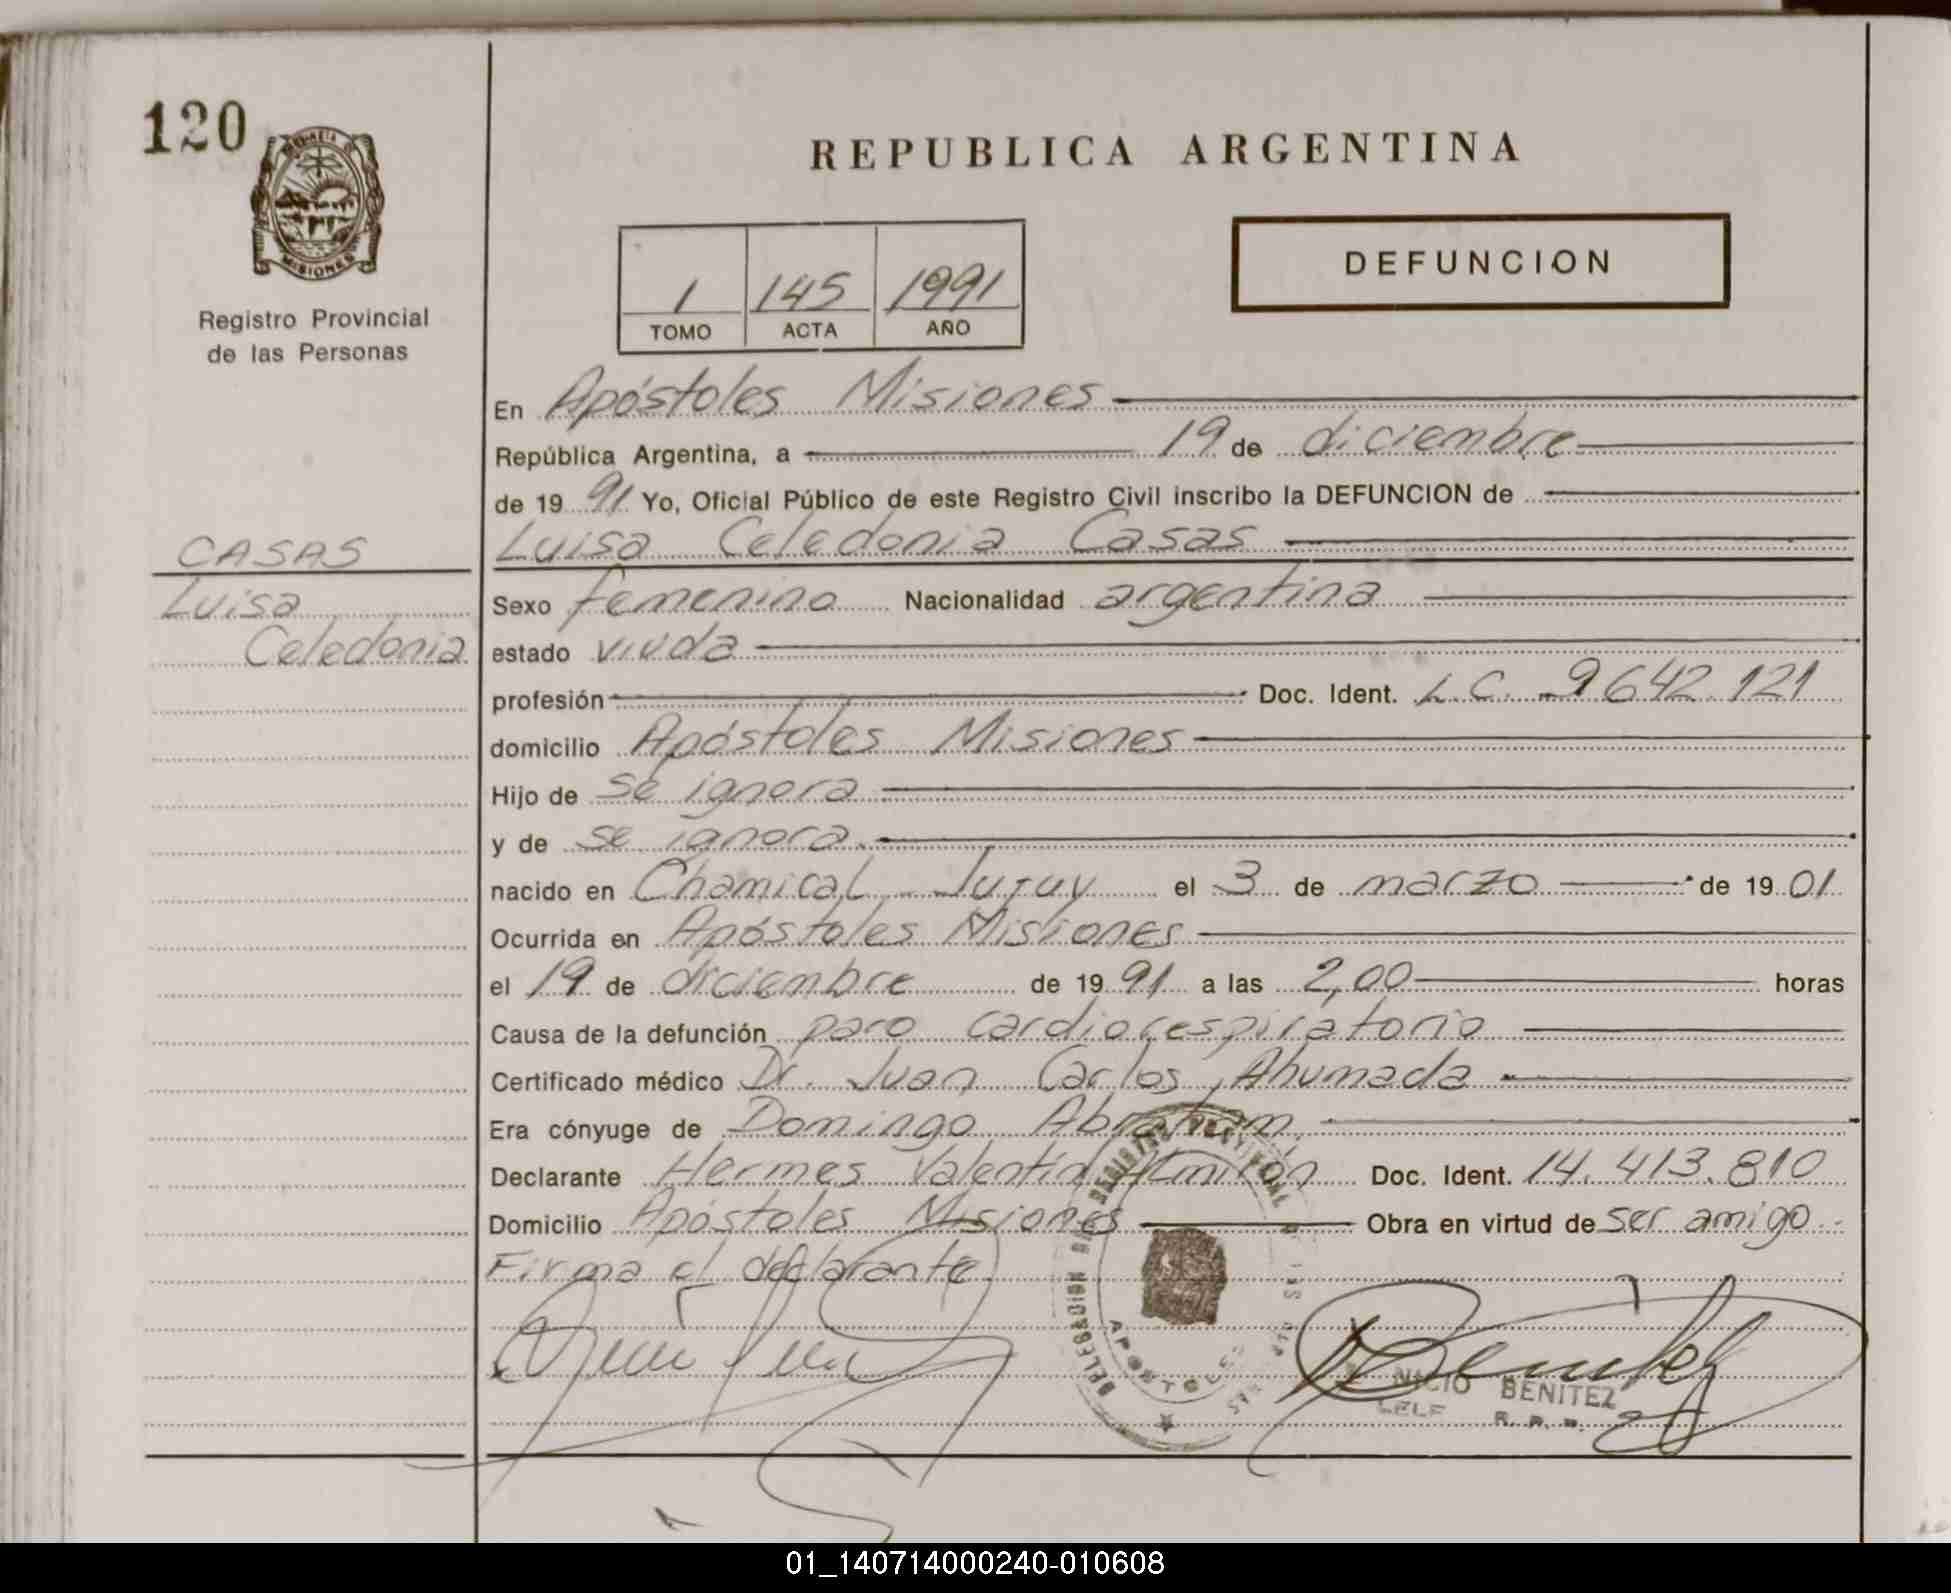 120
MISIONES
Registro Provincial
de las Personas
REPUBLICA ARGENTINA
DEFUNCION
1 145 1991
TOMO ACTA AÑO
En Apóstoles Misiones
República Argentina, a 19 de diciembre
de 19 91 Yo, Oficial Público de este Registro Civil inscribo la DEFUNCION de
Luisa Celedonia Casas
CASAS
Luisa
Celedonia
Sexo femenino Nacionalidad argentina
estado viuda
profesión Doc. Ident. L.C. 9642.121
domicilio Apóstoles Misiones
Hijo de se ignora
y de se ignora
nacido en Chamical - Jujuy el 3 de marzo de 19 01
Ocurrida en Apóstoles Misiones
el 19 de diciembre de 19 91 a las 2,00 horas
Causa de la defunción paro cardiorespiratorio
Certificado médico Dr. Juan Carlos Ahumada
Era cónyuge de Domingo Abraham
Declarante Hermes Valentín Almirón Doc. Ident. 14.413.810
Domicilio Apóstoles Misiones Obra en virtud de ser amigo
Firma el declarante
DELEGACION
APOSTOLES
Benitez
NICIO BENITEZ
R. P. P.
01_140714000240-010608